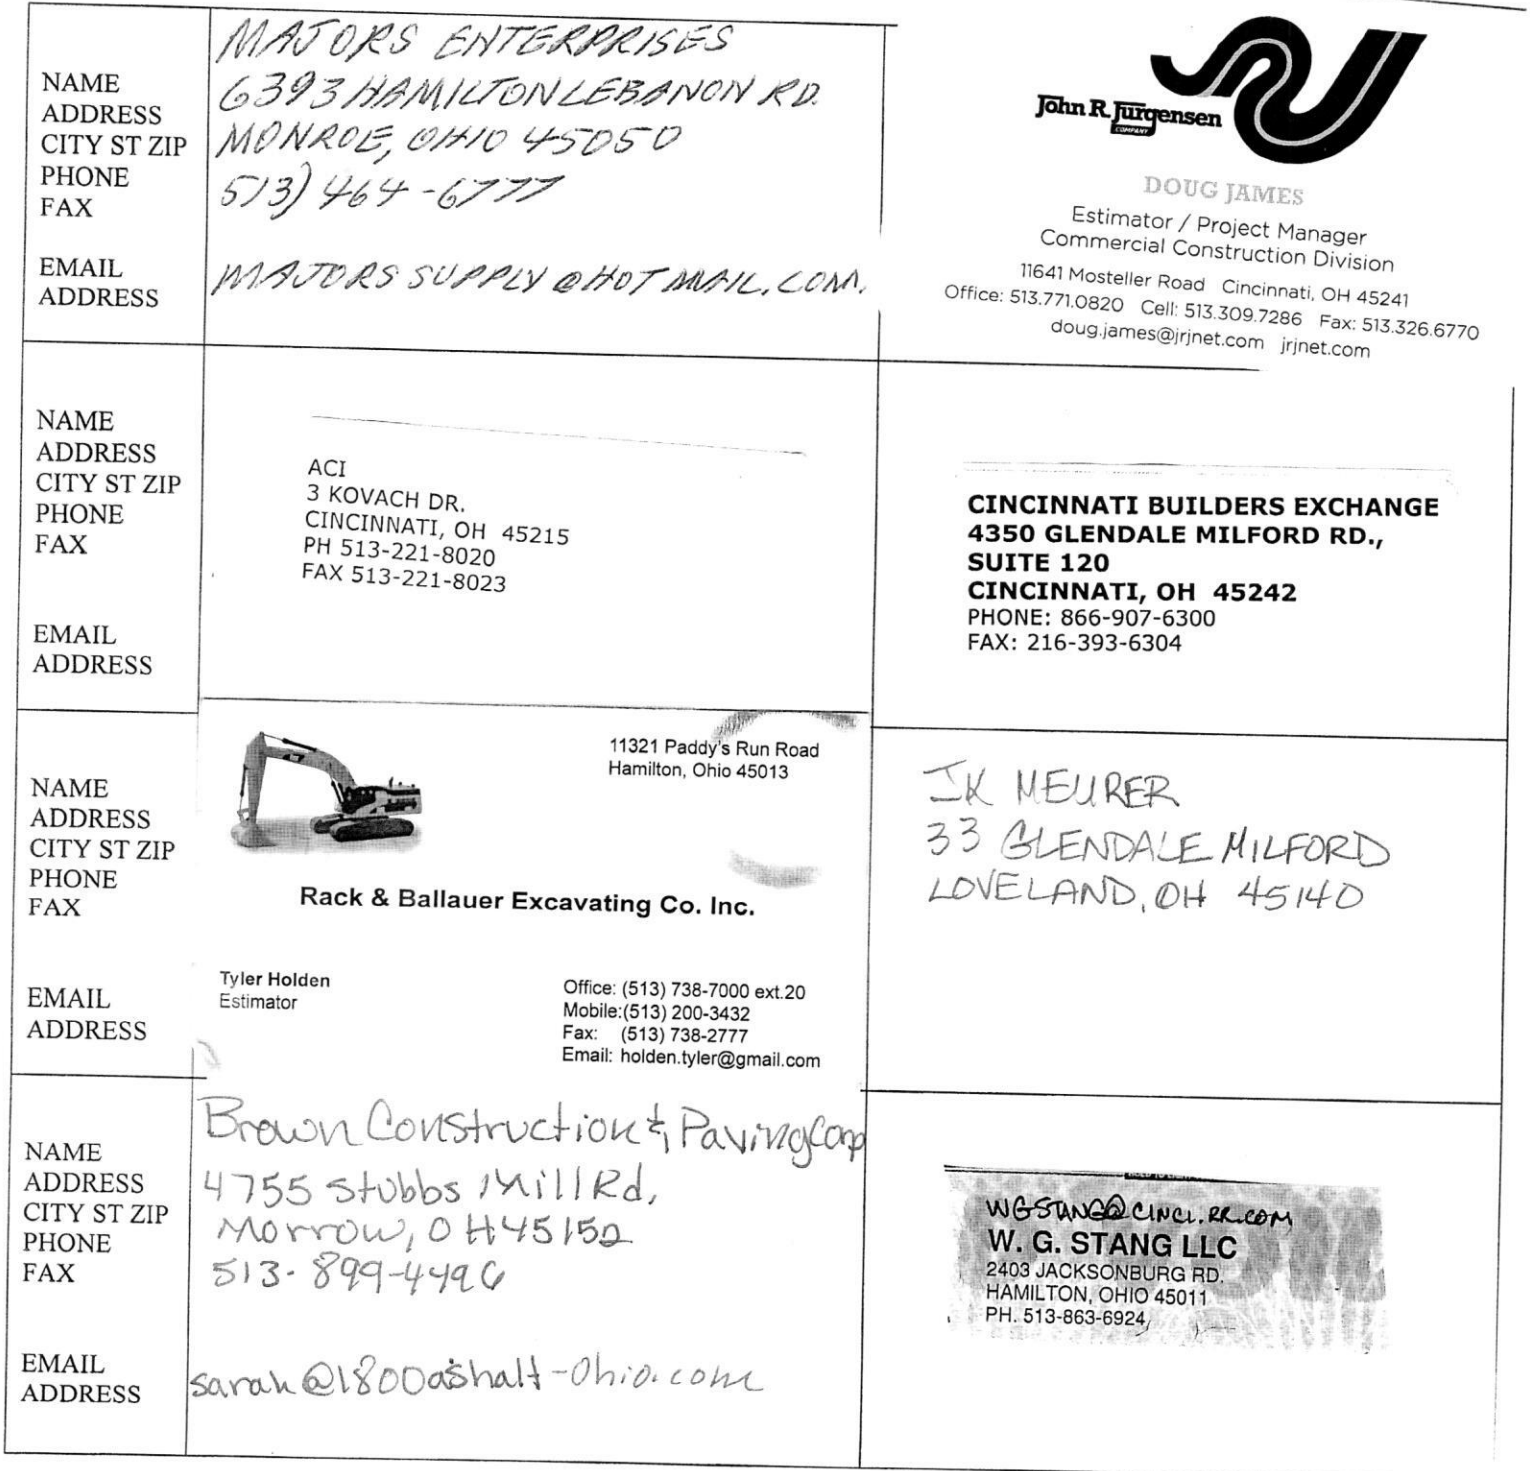 NAME
ADDRESS
CITY ST ZIP
PHONE
FAX
EMAIL
ADDRESS
MAJORS ENTERPRISES
6393 HAMILTON LEBANON RD.
MONROE, OHIO 45050
513) 464-6777
MAJORS SUPPLY@HOTMAIL.COM.
John R. Jurgensen
COMPANY
DOUG JAMES
Estimator / Project Manager
Commercial Construction Division
11641 Mosteller Road Cincinnati, OH 45241
Office: 513.771.0820 Cell: 513.309.7286 Fax: 513.326.6770
doug.james@jrjnet.com jrjnet.com
NAME
ADDRESS
CITY ST ZIP
PHONE
FAX
EMAIL
ADDRESS
ACI
3 KOVACH DR.
CINCINNATI, OH 45215
PH 513-221-8020
FAX 513-221-8023
CINCINNATI BUILDERS EXCHANGE
4350 GLENDALE MILFORD RD.,
SUITE 120
CINCINNATI, OH 45242
PHONE: 866-907-6300
FAX: 216-393-6304
NAME
ADDRESS
CITY ST ZIP
PHONE
FAX
EMAIL
ADDRESS
11321 Paddy's Run Road
Hamilton, Ohio 45013
Rack & Ballauer Excavating Co. Inc.
Tyler Holden
Estimator
Office: (513) 738-7000 ext.20
Mobile:(513) 200-3432
Fax: (513) 738-2777
Email: holden.tyler@gmail.com
JK MEURER
33 GLENDALE MILFORD
LOVELAND, OH 45140
NAME
ADDRESS
CITY ST ZIP
PHONE
FAX
EMAIL
ADDRESS
Brown Construction & Paving Corp
4755 Stubbs Mill Rd,
Morrow, OH 45152
513-899-4496
sarah@1800ashalt-Ohio.com
WGSTANG@CINCI.RR.COM
W. G. STANG LLC
2403 JACKSONBURG RD.
HAMILTON, OHIO 45011
PH. 513-863-6924